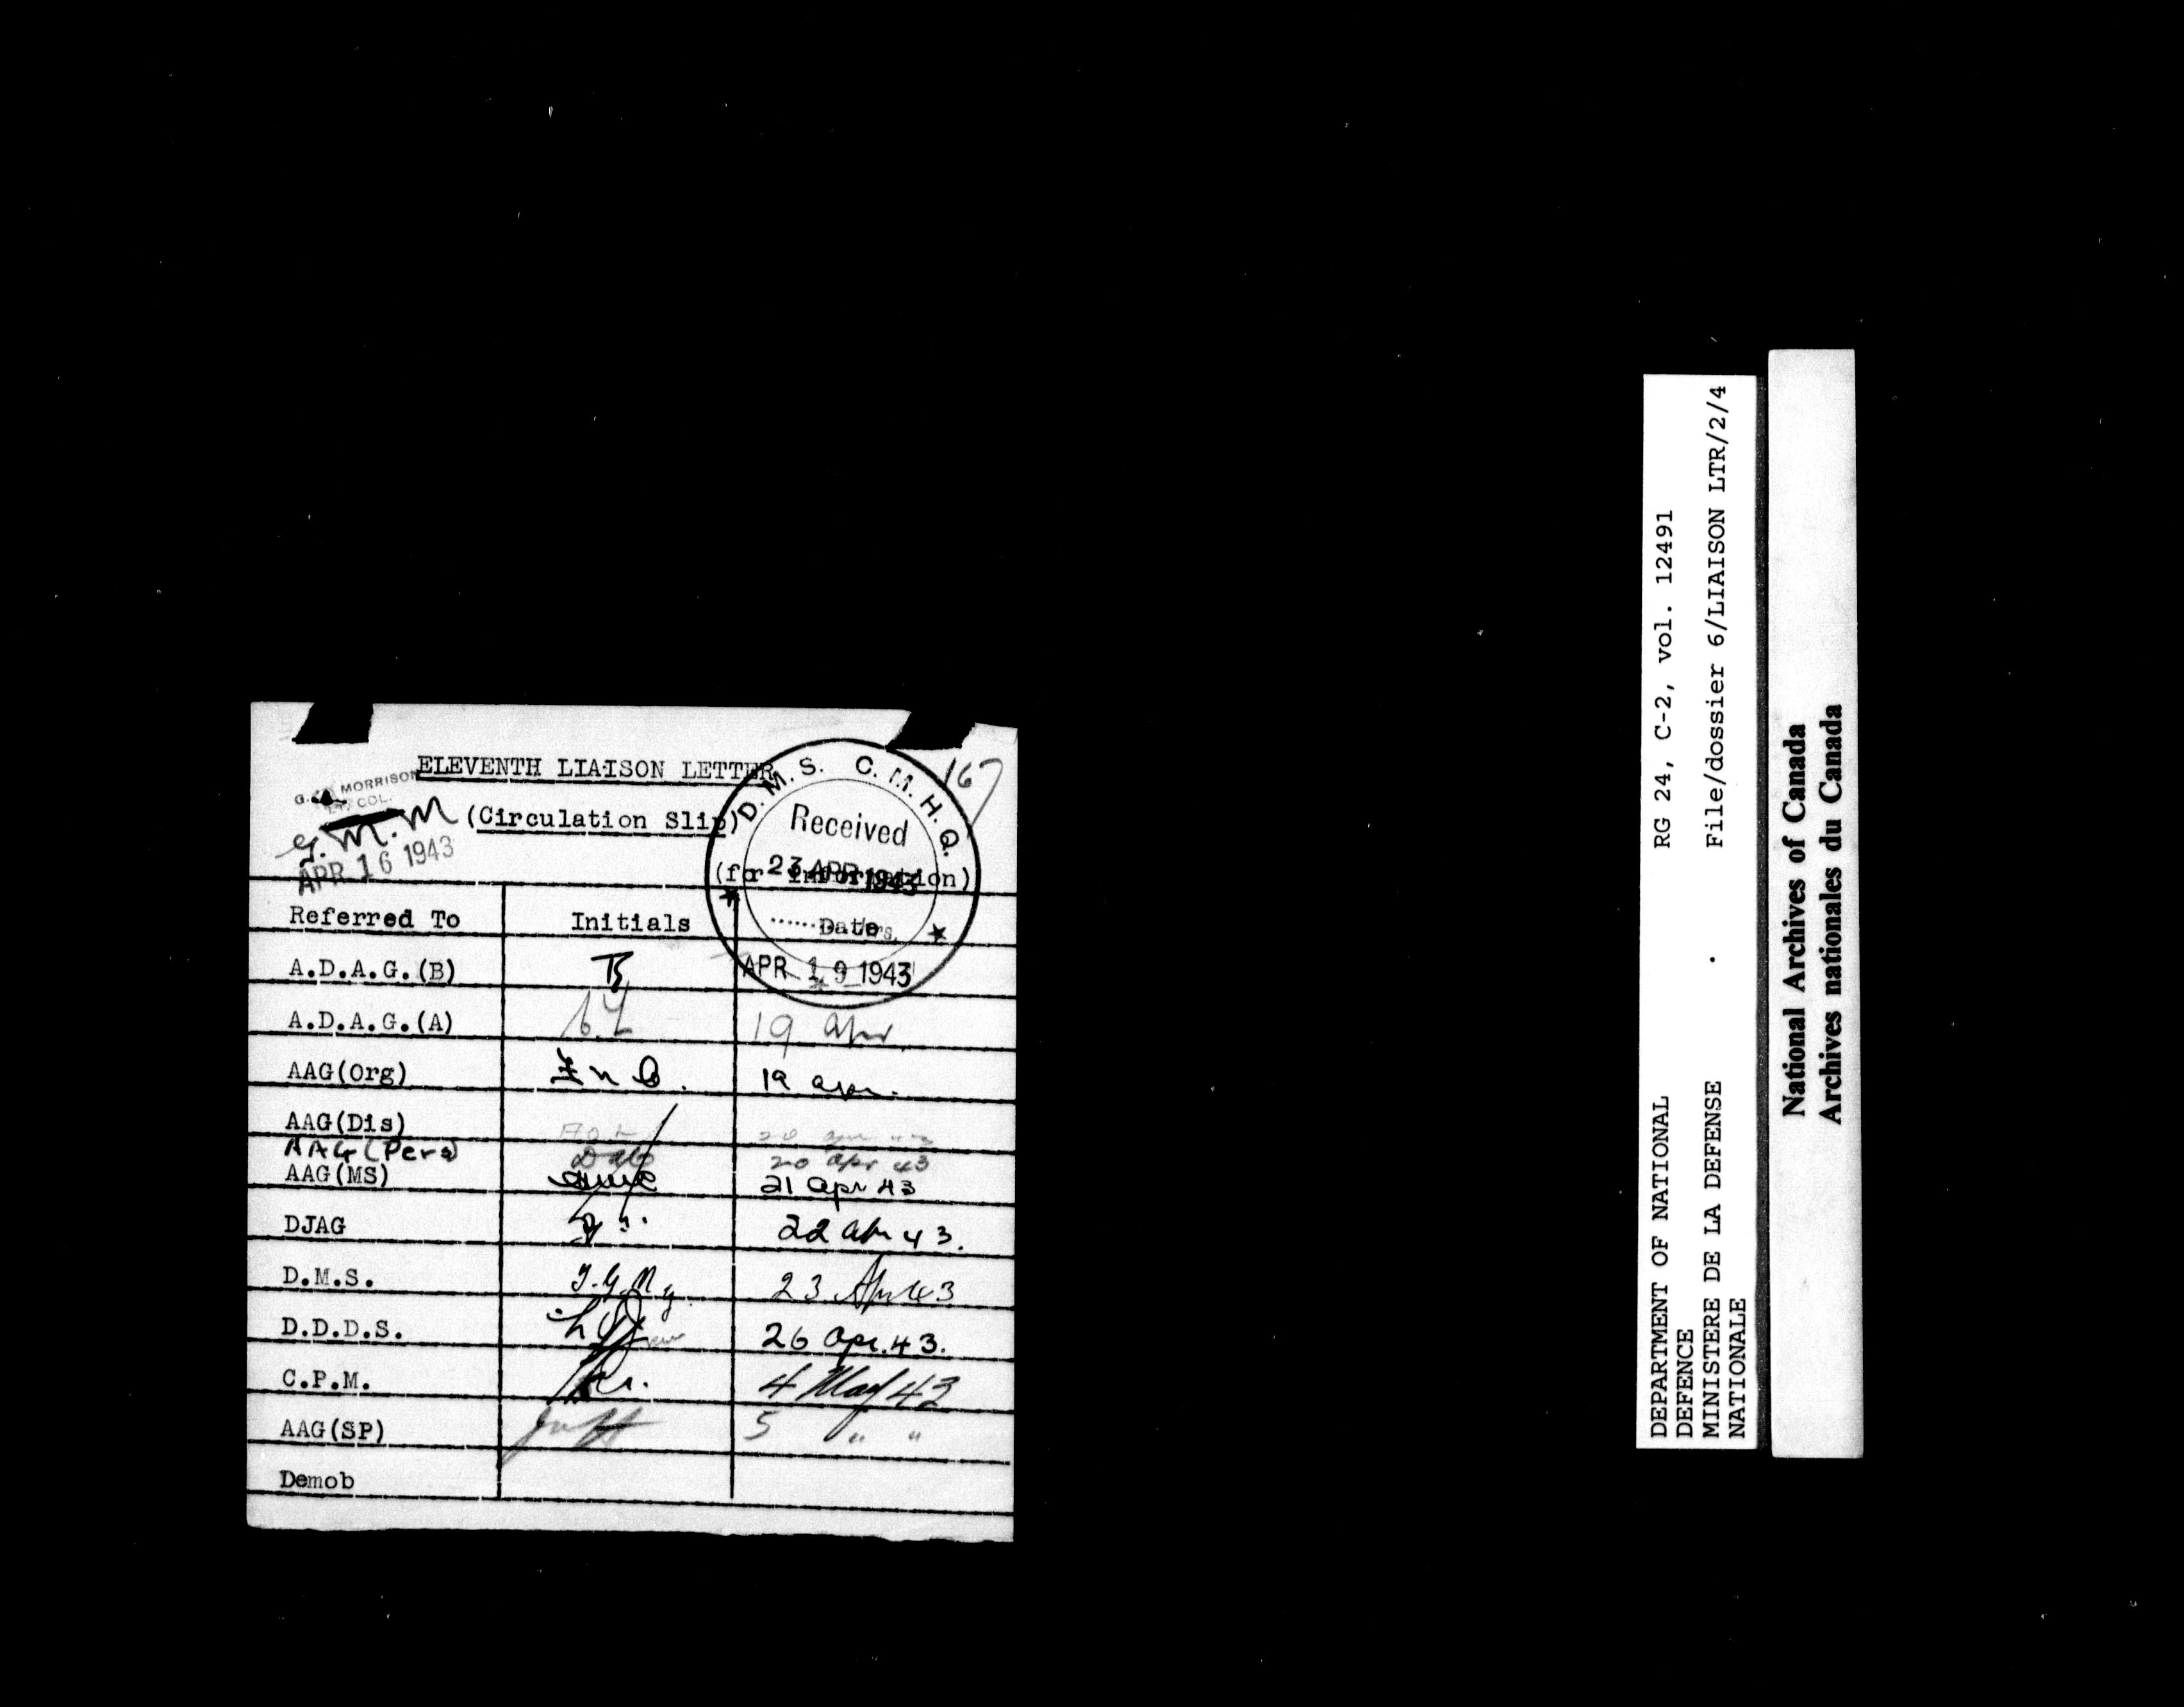 ELEVENTH LIAISON LETTER
(Circulation Slip)
(for Information)
167
MORRISON
LT. COL.
G.M.M
APR 16 1943
D.M.S. C.M.H.Q.
Received
23 APR 1943
Referred To Initials Date
A.D.A.G.(B) APR 19 1943
A.D.A.G.(A) 19 Apr
AAG(Org) 19 Apr.
AAG(Dis) 20 Apr 43
AAG (Pers) 20 Apr 43
AAG(MS) 21 Apr 43
DJAG 22 Apr 43.
D.M.S. 23 Apr 43
D.D.D.S. 26 Apr. 43.
C.P.M. 4 May 43
AAG(SP) 5 " "
Demob
DEPARTMENT OF NATIONAL
DEFENCE
MINISTERE DE LA DEFENSE
NATIONALE
RG 24, C-2, vol. 12491
File/dossier 6/LIAISON LTR/2/4
National Archives of Canada
Archives nationales du Canada